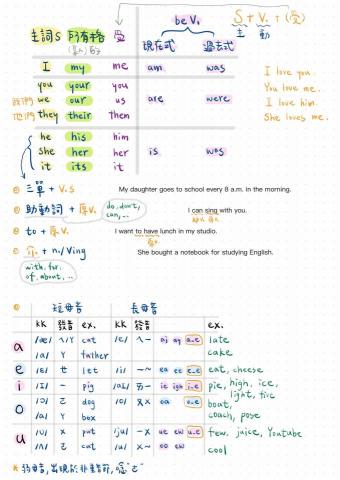 be V.
S + V. + (受)
主 動
主詞S 所有格 受
(某人)的
現在式 過去式
I my me am was
I love you.
you your you
You love me.
我們 we our us are were
I love him.
他們 they their them
She loves me.
he his him
she her her is was
it its it
三單 + V.s
My daughter goes to school every 8 a.m. in the morning.
助動詞 + 原V.
do. don't,
can, ...
I can sing with you.
助V. 原V.
to + 原V.
I want to have lunch in my studio.
原V.
介. + n./Ving
She bought a notebook for studying English.
with. for.
of. about, ...
短母音 長母音
kk 發音 ex. kk 發音 ex.
a /æ/ ㄟ/ㄚ cat /e/ ㄟ- ai ay a_e late
/a/ ㄚ father cake
e /ɛ/ ㄝ let /i/ ㄧ~ ea ee e_e eat, cheese
i /ɪ/ ㄧ pig /aɪ/ ㄞ- ie igh i_e pie, high, ice,
light, five
o /ɔ/ ㄛ dog /o/ ㄡ oa o_e boat,
/a/ ㄚ box coach, pose
u /ʊ/ ㄨ put /ju/ ㄧㄨ ue ew u_e few, juice, Youtube
/ʌ/ ㄜ cut /u/ ㄨ~ oo ew cool